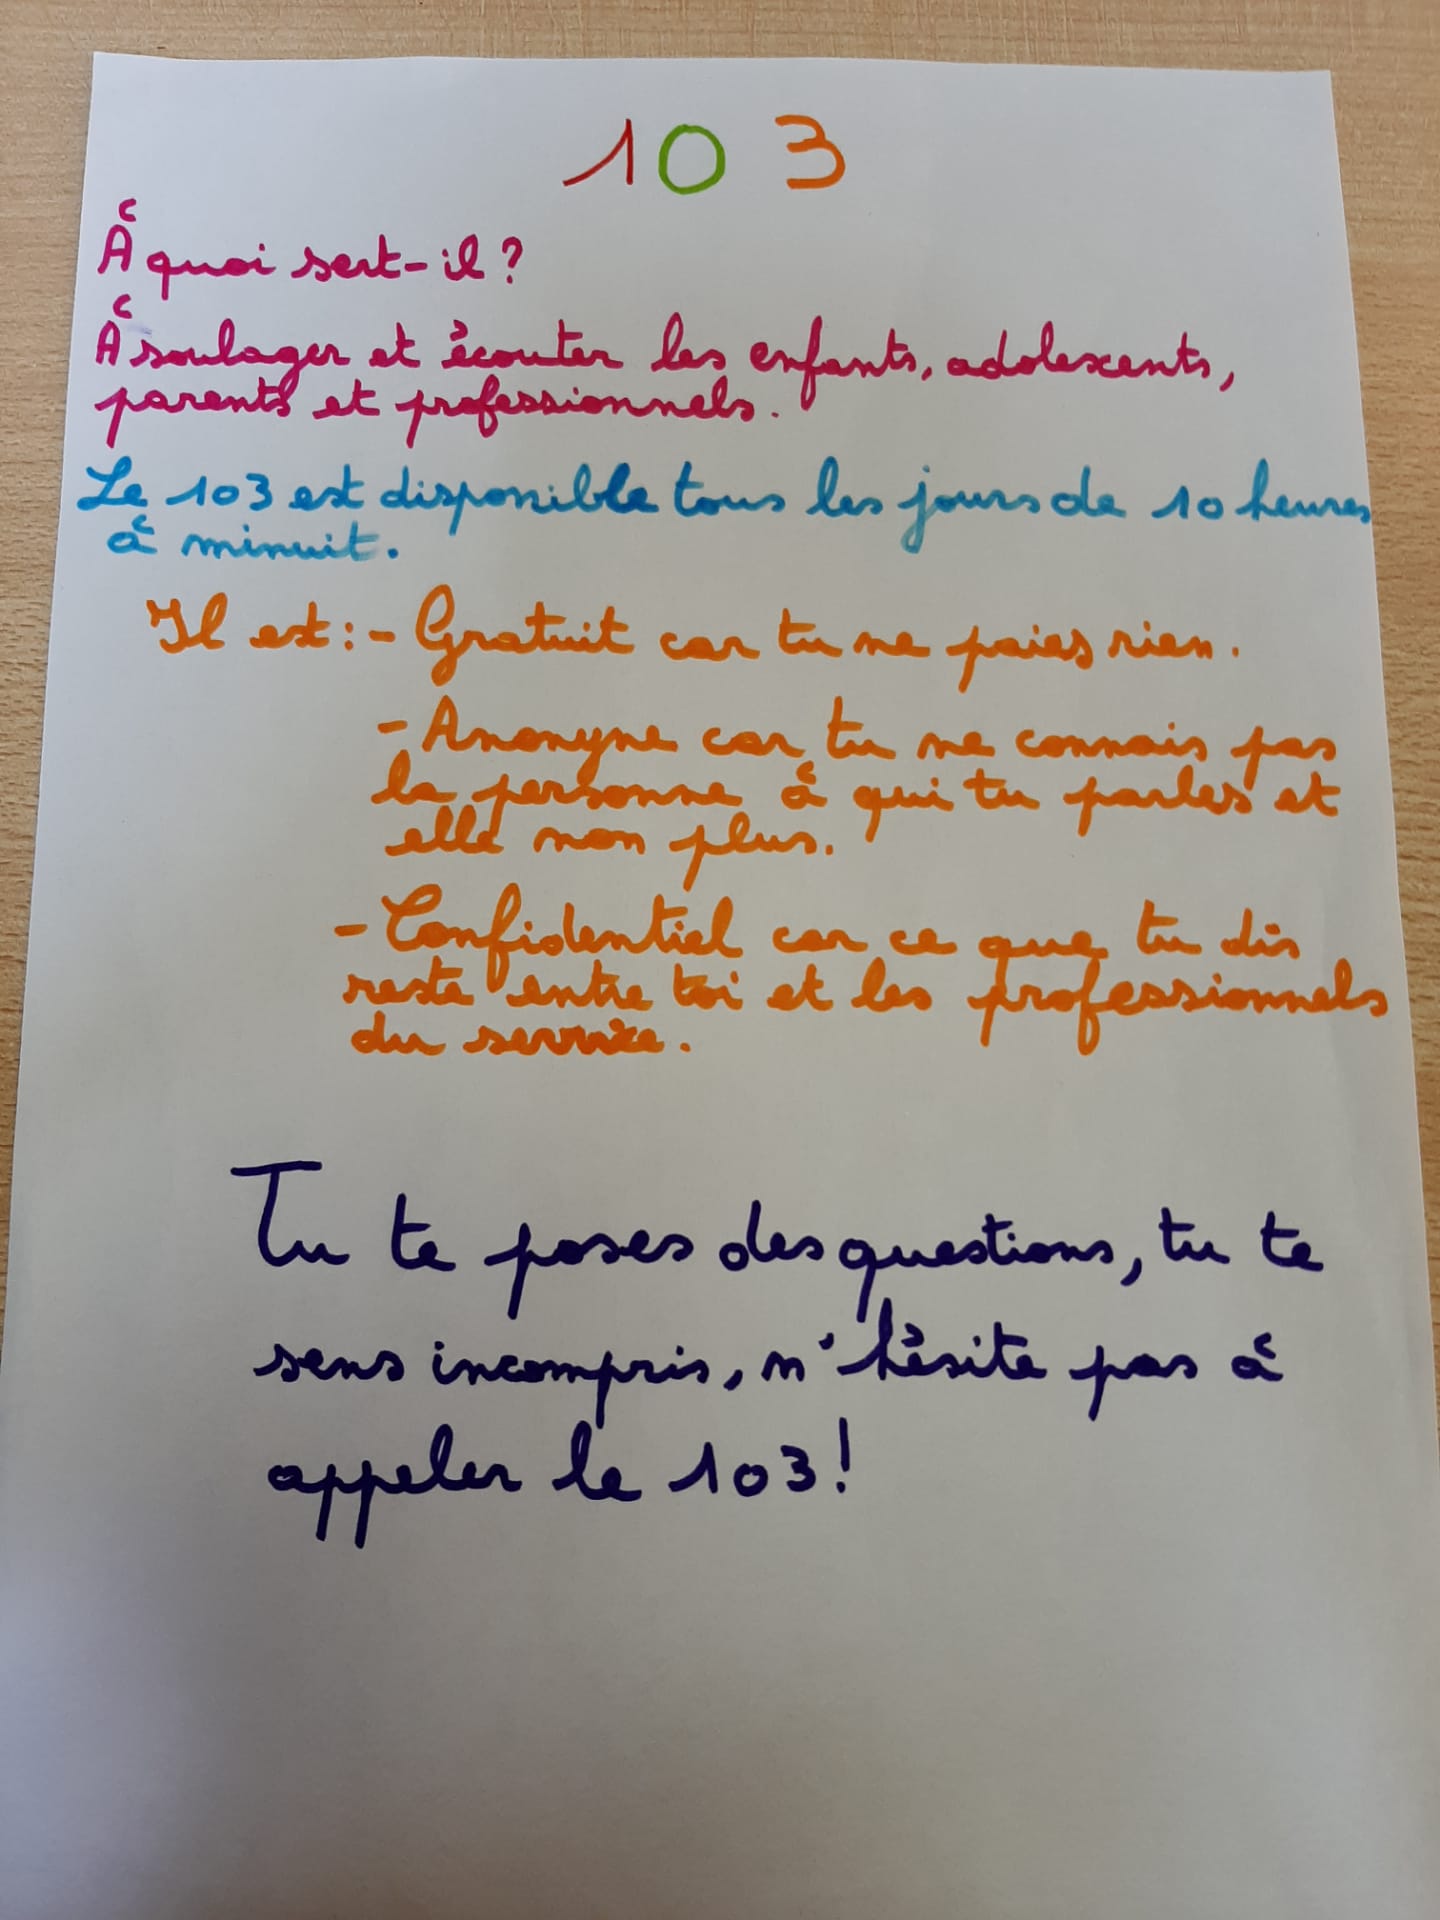 103
À quoi sert-il ?
À soulager et écouter les enfants, adolescents,
parents et professionnels.
Le 103 est disponible tous les jours de 10 heures
à minuit.
Il est : - Gratuit car tu ne paies rien.
- Anonyne car tu ne connais pas
la personne à qui tu parles et
elle non plus.
- Confidentiel car ce que tu dis
reste entre toi et les professionnels
du service.
Tu te poses des questions, tu te
sens incompris, n'hésite pas à
appeler le 103 !